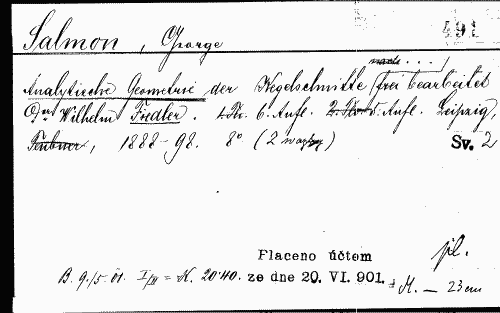 Salmon, George
491
nach . . .
Analytische Geometrie der Kegelschnitte frei bearbeitet
Wilhelm Fiedler. 6. Aufl. 5. Aufl. Leipzig,
Teubner, 1888-98. 8° (2
Sv. 2
Placeno účtem
pl.
B. 9./5. 01. = K. 20·40. ze dne 20. VI. 901. M. — 23 cm